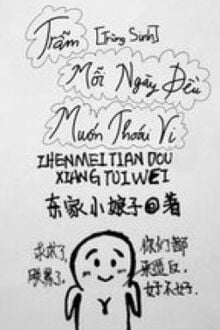 Trẫm [Trùng Sinh]
Mỗi Ngày Đều
Muốn Thoái Vị
ZHENMEITIANDOU
XIANGTUIWEI
东家小娘子@著
求求了,
朕累了,
你们都
来造反,
好不好.